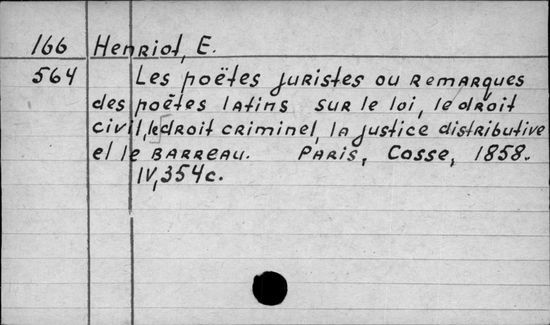 166 Henriot, E.
564 Les poëtes juristes ou remarques
des poëtes latins sur le loi, le droit
civil, le droit criminel, la justice distributive
et le barreau. Paris, Cosse, 1858.
IV, 354c.